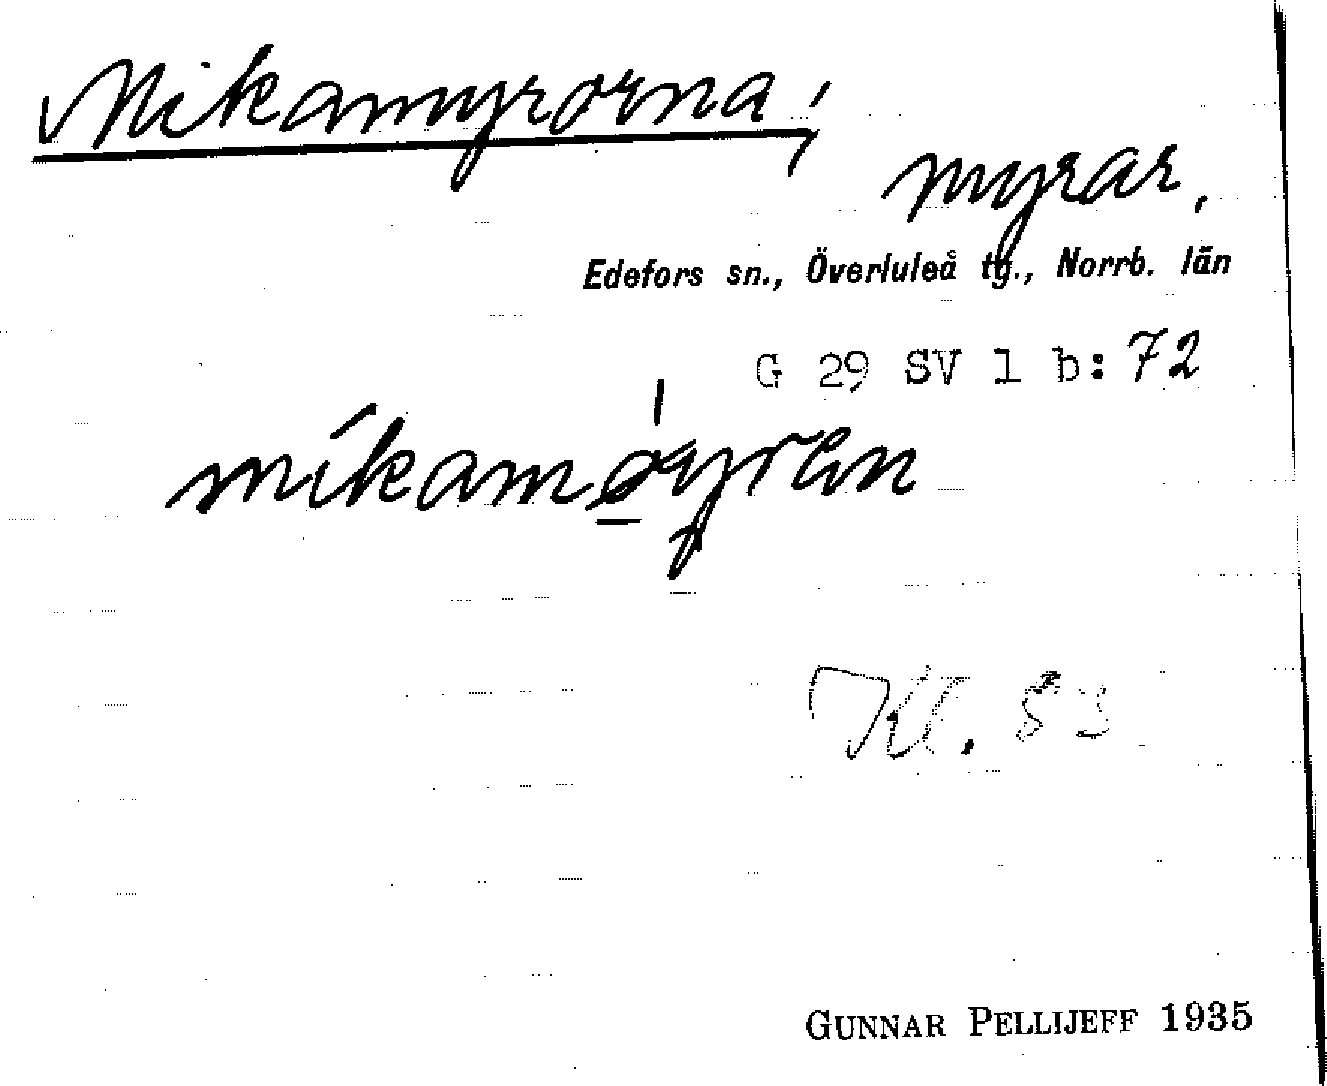 Mikamyrorna,
myrar,
Edefors sn., Överluleå tg., Norrb. län
G 29 SV 1 b: 72
Kl.
GUNNAR PELLIJEFF 1935